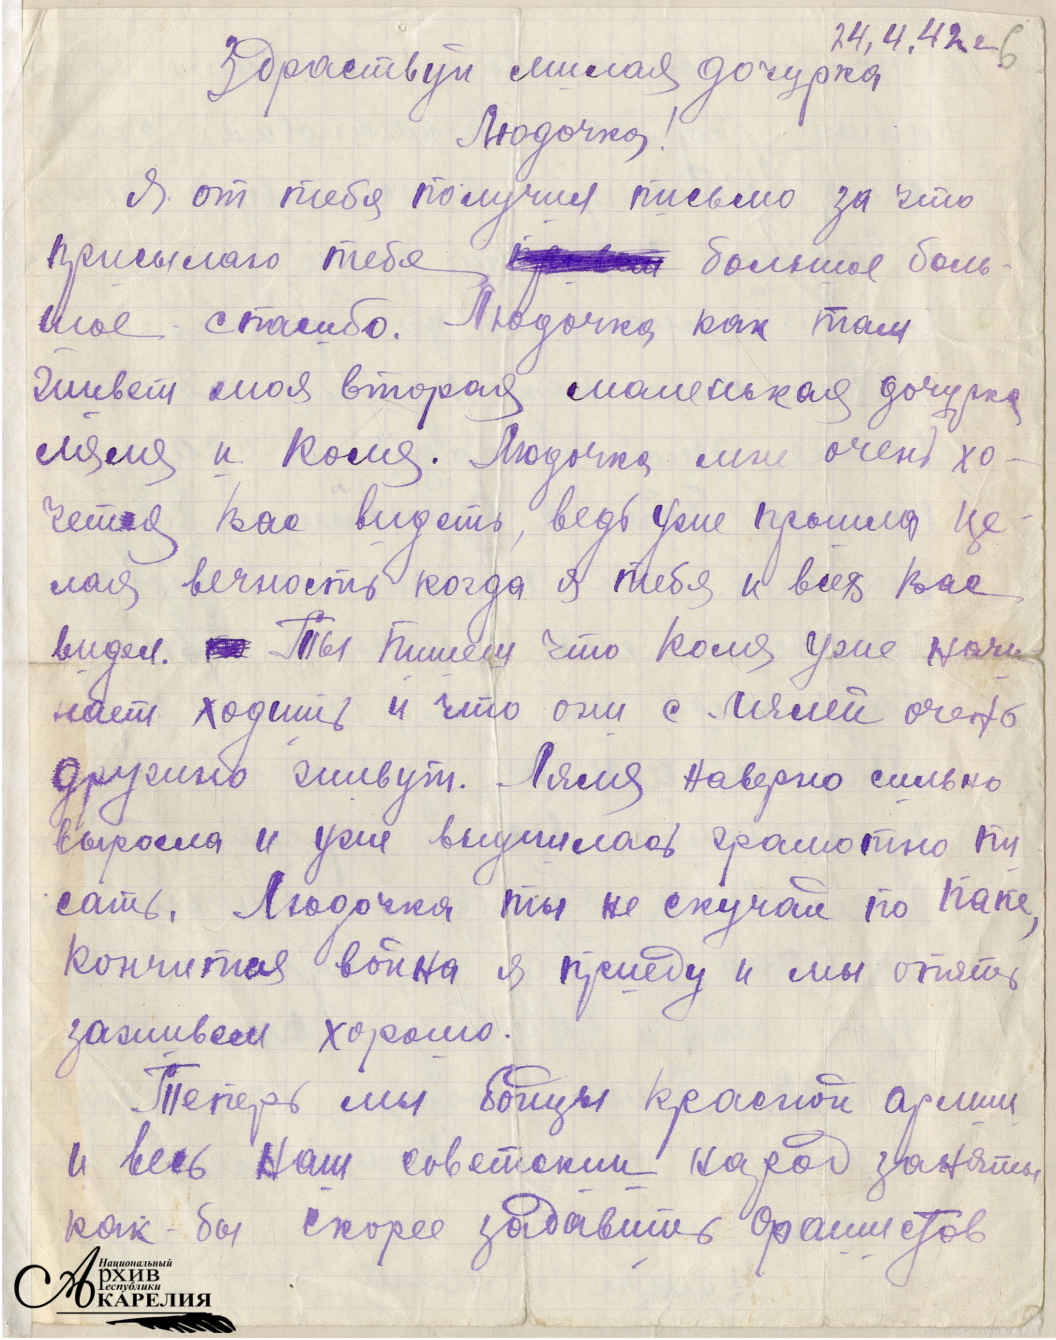 24.4.42 г
6
Здраствуй милая дочурка
Людочка!
Я от тебя получил письмо за что
присылаю тебе большое боль-
шое спасибо. Людочка как там
живет моя вторая маленькая дочурка
Ляля и Коля. Людочка мне очень хо-
четея Вас видеть, ведь уже прошла це-
лая вечность когда я тебя и всех Вас
видел. Ты пишеш что Коля уже начи
нает ходить и что они с Лялей очень
дружно живут. Ляля наверно сильно
выросла и уже выучилась грамотно пи
сать. Людочка ты не скучай по папе,
кончится война я приеду и мы опять
заживем хорошо.
Теперь мы бойцы красной армии
и весь наш советский народ заняты
как-бы скорее задавить фашистов
Национальный
Архив
Республики
Карелия